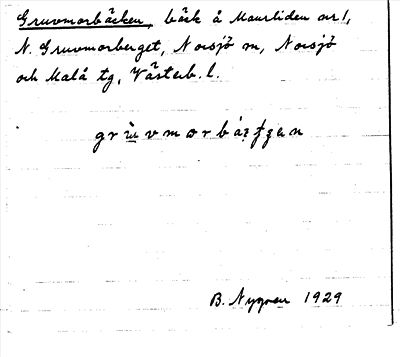 Gruvmorbäcken, bäck å Maurliden arl,
N. Gruvmorberget, Norsjö m, Norsjö
och Malå tg, Västerb. l.
B. Nygren 1929